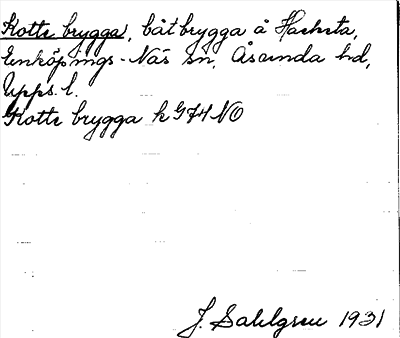 Kotte brygga, båtbrygga å Hacksta,
Enköpings-Näs sn, Åsunda hd,
Upps. l.
Kotte brygga k G74 NO
J. Sahlgren 1931